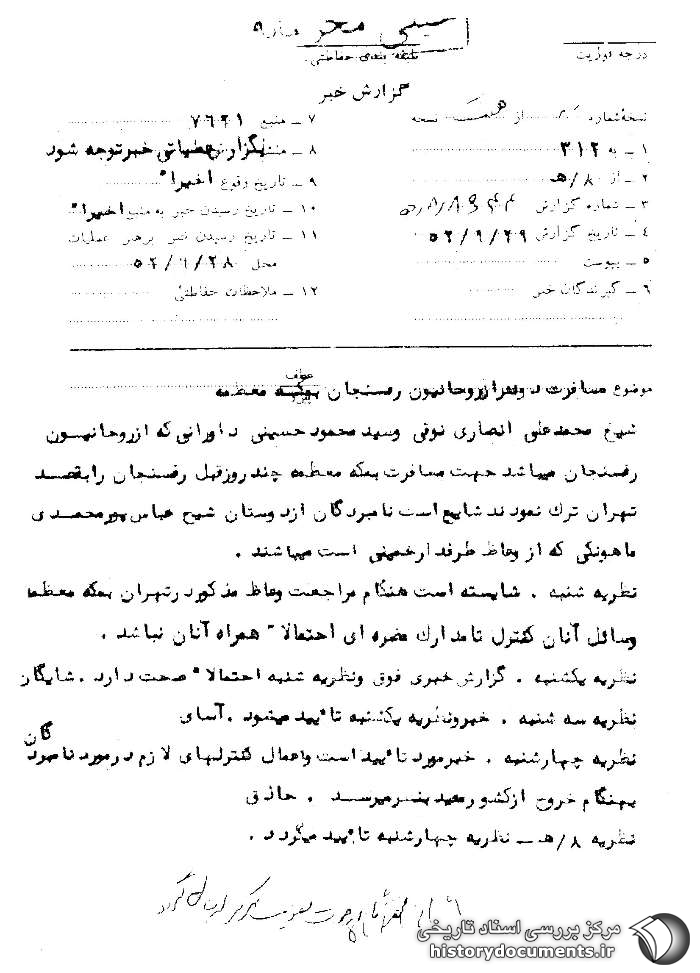 خیلی محرمانه
درجه فوریت
طبقه بندی حفاظتی
گزارش خبر
نسخه شماره از نسخه
۱ ـ به ۳۱۲
۲ ـ از ۸/هـ
۳ ـ شماره گزارش
۴ ـ تاریخ گزارش ۵۲/۹/۲۹
۵ ـ پیوست
۶ ـ گیرندگان خبر
۷ ـ منبع ۷۶۲۱
۸ ـ خبر توجه شود
۹ ـ تاریخ وقوع اخیرا"
۱۰ ـ تاریخ رسیدن خبر به منبع اخیرا"
۱۱ ـ تاریخ رسیدن خبر برهبر عملیات
محل ۵۲/۹/۲۸
۱۲ ـ ملاحظات حفاظتی
عطف
موضوع مسافرت دونفر ازروحانیون رفسنجان بمکه معظمه
شیخ محمدعلی انصاری نوقی وسید محمود حسینی داورانی که ازروحانیسون
رفسنجان میباشد جهت مسافرت بمکه معظمه چند روزقبل رفسنجان رابقصد
تهران ترك نمودند شایع است نامبردگان ازدوستان شیخ عباس پورمحمدی
ماهونکی که از وعاظ طرفدارخمینی است میباشند .
نظریه شنبه . شایسته است هنگام مراجعت وعاظ مذکوردرتهران بمکه معظمه
وسائل آنان کنترل تامدارك مضره ای احتمالا" همراه آنان نباشد .
نظریه یکشنبه . گزارش خبری فوق ونظریه شنبه احتمالا" صحت دارد . شایگان
نظریه سه شنبه . خبرونظریه یکشنبه تایید میشود . آسای
نظریه چهارشنبه . خبرمورد تایید است واعمال کنترلهای لازم درمورد نامبردگان
بهنگام خروج ازکشور مفید بنظرمیرسد . حاذق
نظریه ۸/هـ ـ نظریه چهارشنبه تایید میگردد .
مرکز بررسی اسناد تاریخی
historydocuments.ir